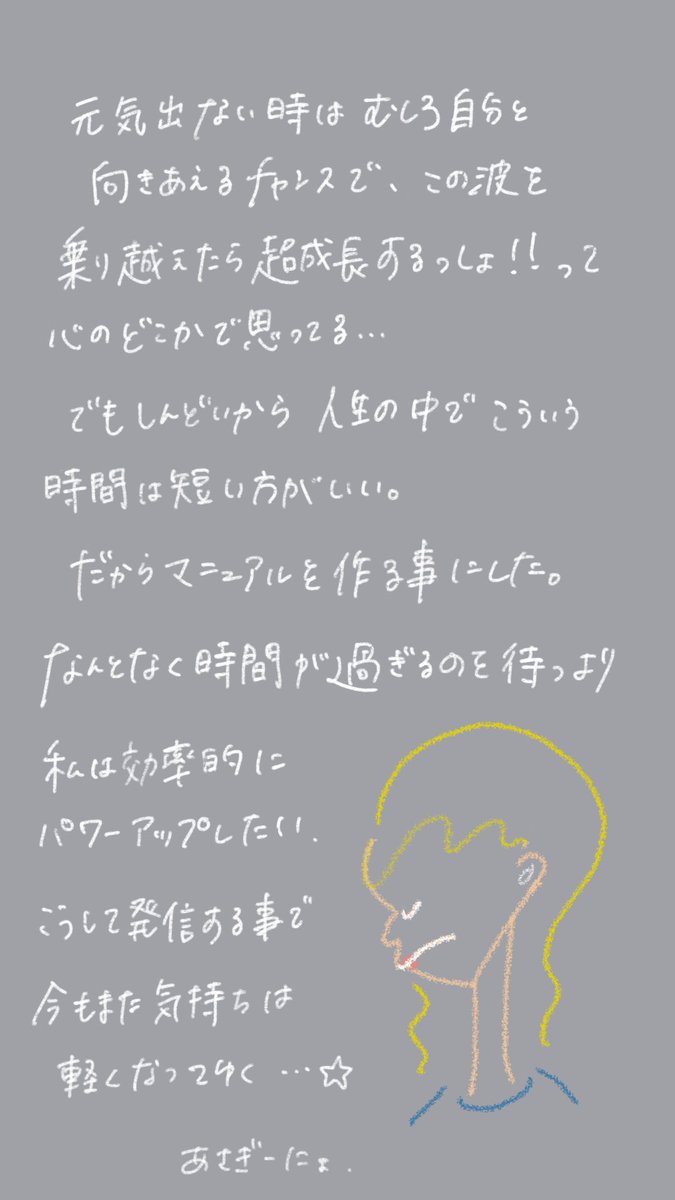 元気出ない時は むしろ自分と
向きあえるチャンスで、この波を
乗り越えたら超成長するっしょ!!って
心のどこかで思ってる…
でもしんどいから 人生の中でこういう
時間は短い方がいい。
だからマニュアルを作る事にした。
なんとなく時間が過ぎるのを待つより
私は効率的に
パワーアップしたい.
こうして発信する事で
今もまた気持ちは
軽くなってゆく…☆
あさぎーにょ.